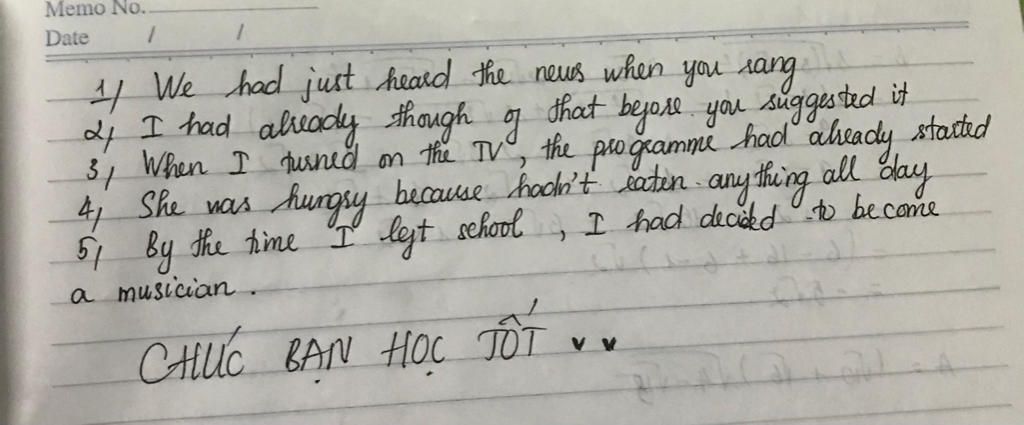 Memo No.
Date / /
1) We had just heard the news when you rang
2) I had already though of that before you suggested it
3) When I turned on the TV, the programme had already started
4) She was hungry because hadn't eaten anything all day
5) By the time I left school, I had decided to become
a musician.
CHÚC BẠN HỌC TỐT